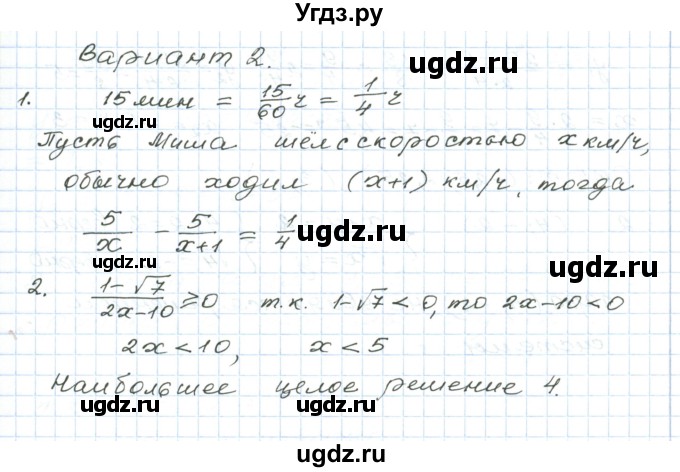 Угдз.ру
Вариант 2.
1. 15 мин = 15/60 ч = 1/4 ч
Пусть Миша шёл с скоростью x км/ч,
обычно ходил (x+1) км/ч, тогда
5/x - 5/(x+1) = 1/4
2. (1-√7)/(2x-10) ≥ 0 т.к. 1-√7 < 0, то 2x-10 < 0
2x < 10, x < 5
Наибольшее целое решение 4.
ugdz.ru
ugdz.ru
ugdz.ru
ugdz.ru
ugdz.ru
ugdz.ru
ugdz.ru
ugdz.ru
ugdz.ru